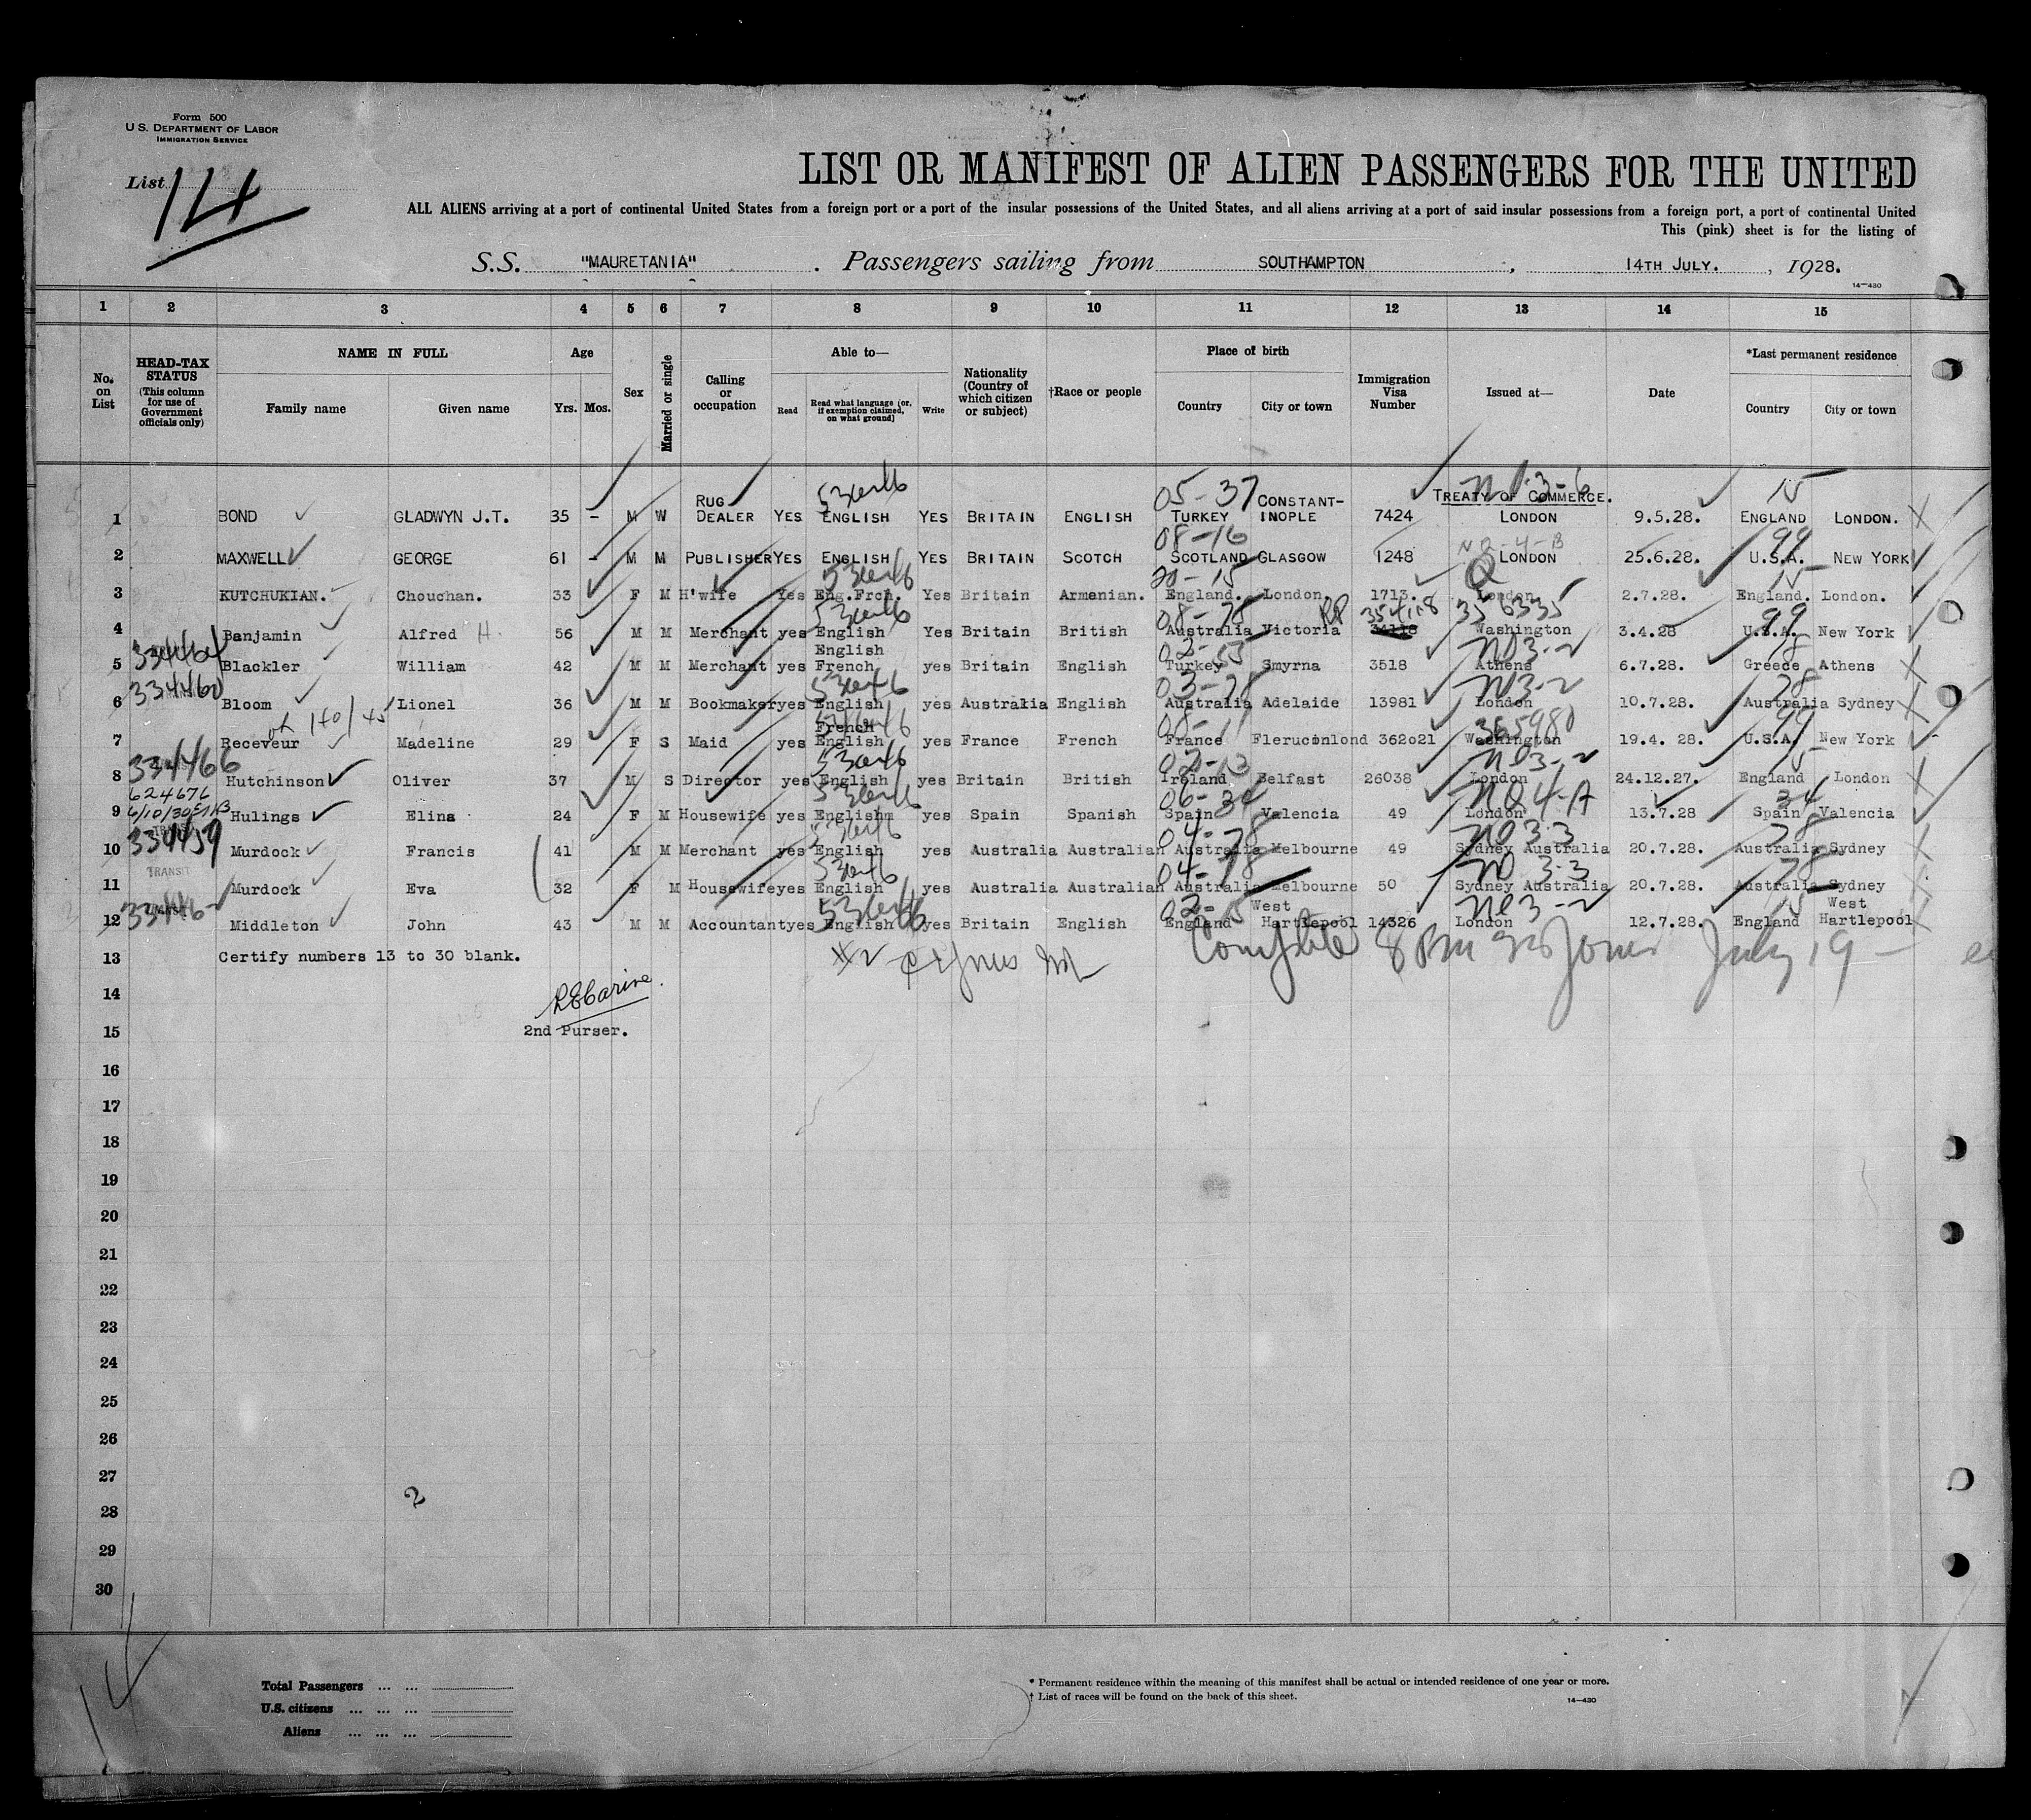 Form 500
U.S. DEPARTMENT OF LABOR
IMMIGRATION SERVICE
List 14
LIST OR MANIFEST OF ALIEN PASSENGERS FOR THE UNITED
ALL ALIENS arriving at a port of continental United States from a foreign port or a port of the insular possessions of the United States, and all aliens arriving at a port of said insular possessions from a foreign port, a port of continental United
This (pink) sheet is for the listing of
S.S. "MAURETANIA" . Passengers sailing from SOUTHAMPTON , 14TH JULY. , 1928.
14—430
1 2 3 4 5 6 7 8 9 10 11 12 13 14 15
No. on List
HEAD-TAX STATUS (This column for use of Government officials only)
NAME IN FULL
Family name Given name
Age
Yrs. Mos.
Sex
Married or single
Calling or occupation
Able to—
Read Read what language [or, if exemption claimed, on what ground] Write
Nationality (Country of which citizen or subject)
†Race or people
Place of birth
Country City or town
Immigration Visa Number
Issued at—
Date
*Last permanent residence
Country City or town
1 BOND GLADWYN J.T. 35 - M W RUG DEALER YES ENGLISH YES BRITAIN ENGLISH 05-37 TURKEY CONSTANT-INOPLE 7424 TREATY OF COMMERCE. LONDON 9.5.28. 15 ENGLAND LONDON.
2 MAXWELL GEORGE 61 - M M PUBLISHER YES ENGLISH YES BRITAIN SCOTCH 08-16 SCOTLAND GLASGOW 1248 NQ-4-B LONDON 25.6.28. 99 U.S.A. NEW YORK
3 KUTCHUKIAN. Chouchan. 33 F M H'wife Yes Eng.Frch. Yes Britain Armenian. 20-15 England. London. 1713. Q London 2.7.28. 15 England. London.
4 Benjamin Alfred H. 56 M M Merchant yes English Yes Britain British 08-78 Australia Victoria RP 354118 34118 356335 Washington 3.4.28 99 U.S.A. New York
334464
5 Blackler William 42 M M Merchant yes English French yes Britain English Turkey Smyrna 3518 NO3-2 Athens 6.7.28. Greece Athens
334460
6 Bloom Lionel 36 M M Bookmaker yes English yes Australia English 03-78 Australia Adelaide 13981 NO3-2 London 10.7.28. 78 Australia Sydney
ok 140/45
7 Receveur Madeline 29 F S Maid yes French English yes France French 08-11 France Flerucinlond 362021 365980 Washington 19.4. 28. 99 U.S.A. New York
334466
8 Hutchinson Oliver 37 M S Director yes English yes Britain British 02-13 Ireland Belfast 26038 NO3-2 London 24.12.27. 15 England London
624676
9 Hulings Elina 24 F M Housewife yes English yes Spain Spanish 06-34 Spain Valencia 49 NQ4-A London 13.7.28 34 Spain Valencia
334459
10 Murdock Francis 41 M M Merchant yes English yes Australia Australian 04-78 Australia Melbourne 49 NO 3.3 Sydney Australia 20.7.28. 78 Australia Sydney
TRANSIT
11 Murdock Eva 32 F M Housewife yes English yes Australia Australian 04-78 Australia Melbourne 50 NO 3.3 Sydney Australia 20.7.28. 78 Australia Sydney
12 Middleton John 43 M M Accountant yes English yes Britain English 02-15 England West Hartlepool 14326 NO3-2 London 12.7.28. 15 England West Hartlepool
13 Certify numbers 13 to 30 blank.
Complete 8 PM Jones July 19
14
2nd Purser.
15
16
17
18
19
20
21
22
23
24
25
26
27
28
2
29
30
14
Total Passengers ... ...
U.S. citizens ... ... ...
Aliens ... ... ...
* Permanent residence within the meaning of this manifest shall be actual or intended residence of one year or more.
† List of races will be found on the back of this sheet.
14—430